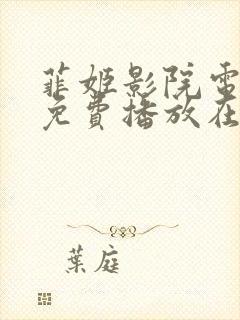 菲姬影院電
免費播放在
葉庭